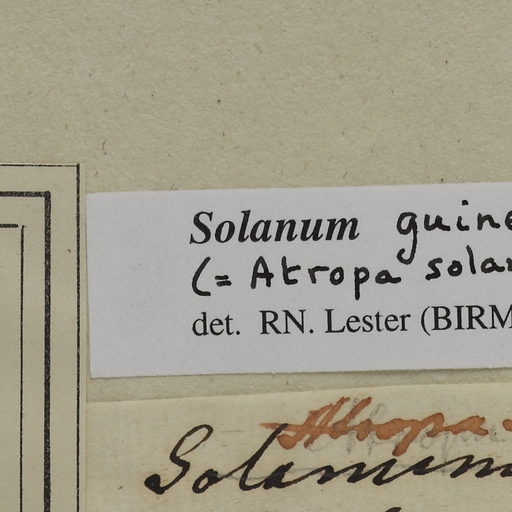 Solanum guine
(= Atropa solan
det. RN. Lester (BIRM
Atropa
Solanum